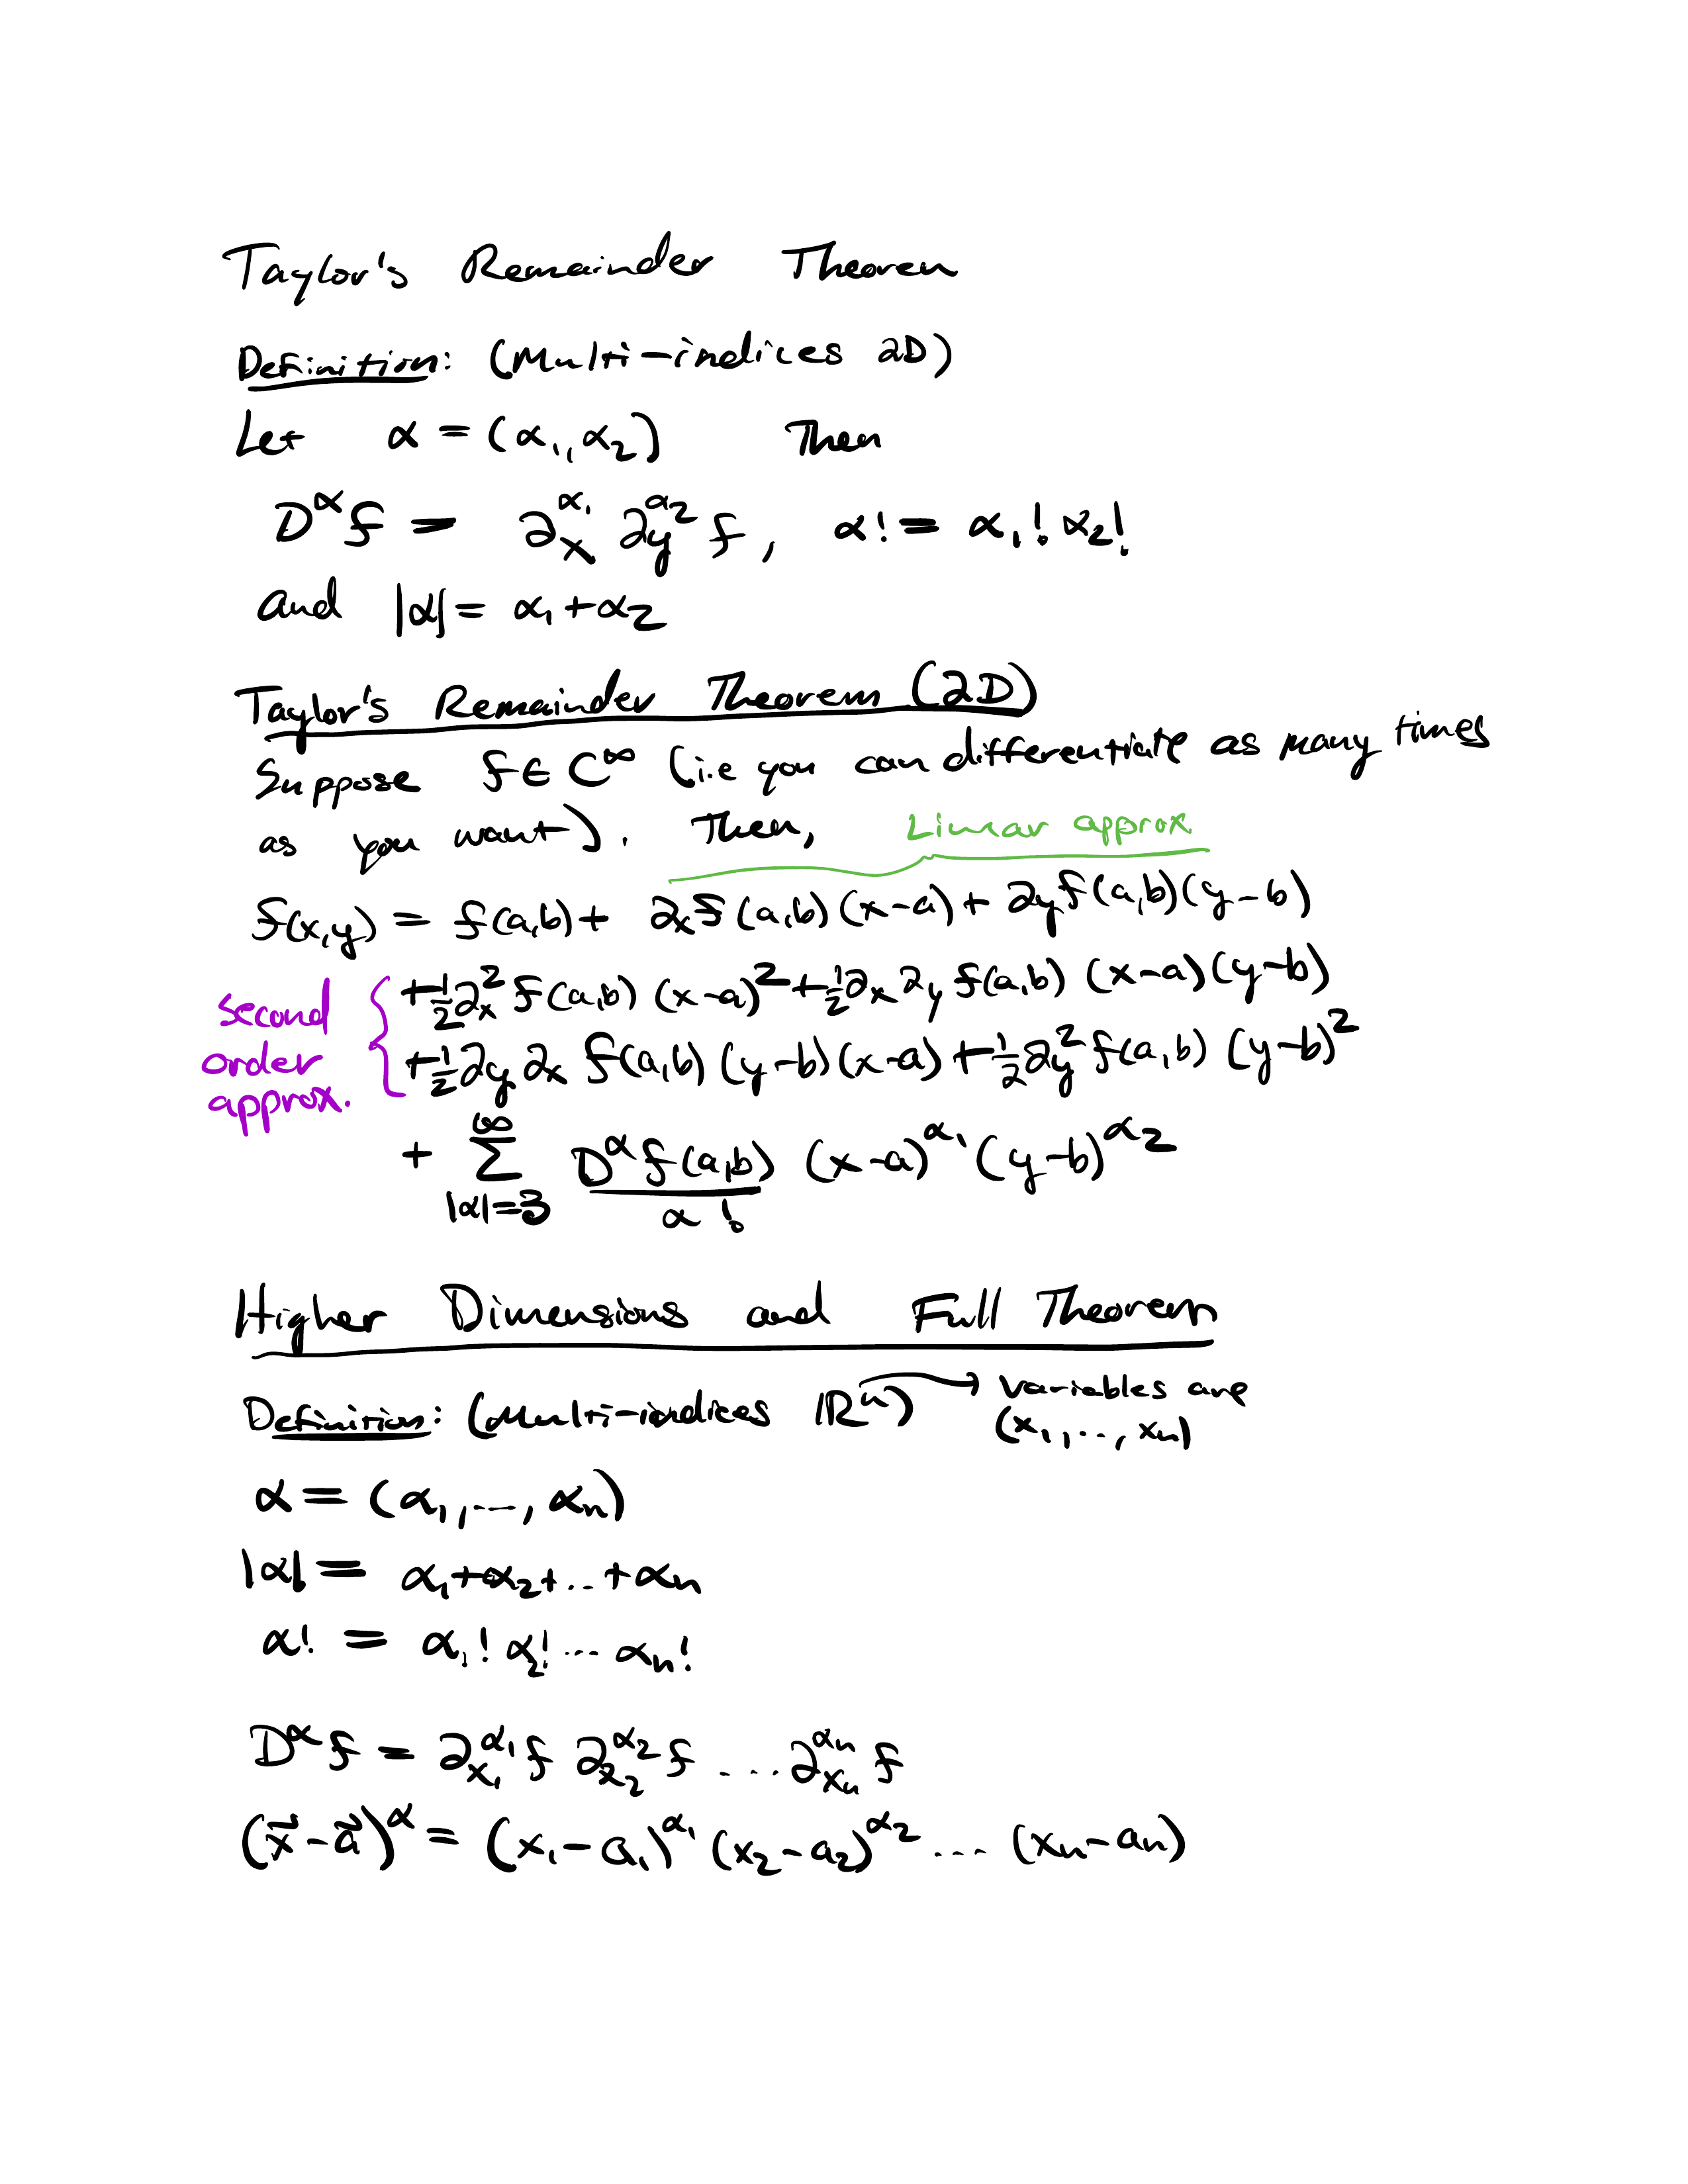 Taylor's Remainder Theorem
Definition: (Multi-indices 2D)
Let α = (α₁, α₂) Then
D^α f = ∂_x^α₁ ∂_y^α₂ f, α! = α₁! α₂!
and |α| = α₁+α₂
Taylor's Remainder Theorem (2D)
Suppose f ∈ C^∞ (i.e you can differentiate as many times
as you want). Then, Linear approx
f(x,y) = f(a,b) + ∂_x f(a,b)(x-a) + ∂_y f(a,b)(y-b)
second order approx. { +½∂_x² f(a,b) (x-a)² + ½∂_x ∂_y f(a,b) (x-a)(y-b)
+½∂_y ∂_x f(a,b) (y-b)(x-a) + ½∂_y² f(a,b) (y-b)²
+ ∑_{|α|=3}^∞ D^α f(a,b)/α! (x-a)^α₁ (y-b)^α₂
Higher Dimensions and Full Theorem
Definition: (Multi-indices ℝⁿ) → variables are
(x₁,..,xₙ)
α = (α₁,...,αₙ)
|α| = α₁+α₂+..+αₙ
α! = α₁! α₂! ... αₙ!
D^α f = ∂_x₁^α₁ f ∂_x₂^α₂ f ....∂_xₙ^αₙ f
(x⃗-a⃗)^α = (x₁-a₁)^α₁ (x₂-a₂)^α₂ .... (xₙ-aₙ)